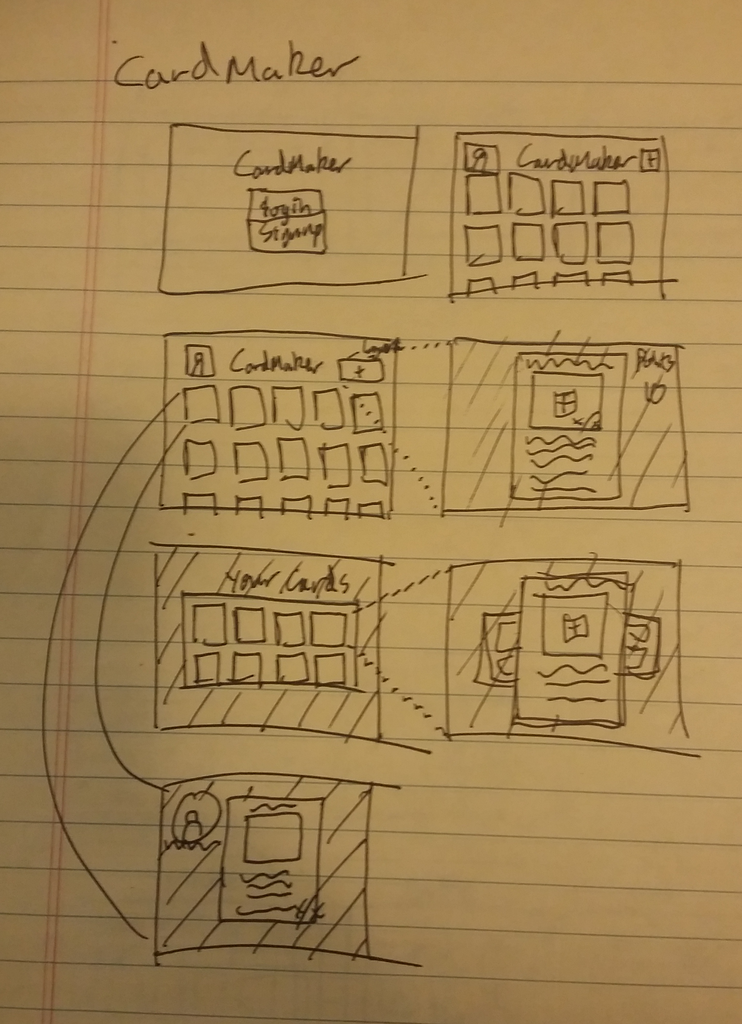 CardMaker
CardMaker
Login
Signup
CardMaker +
CardMaker
+
+
Your Cards
+